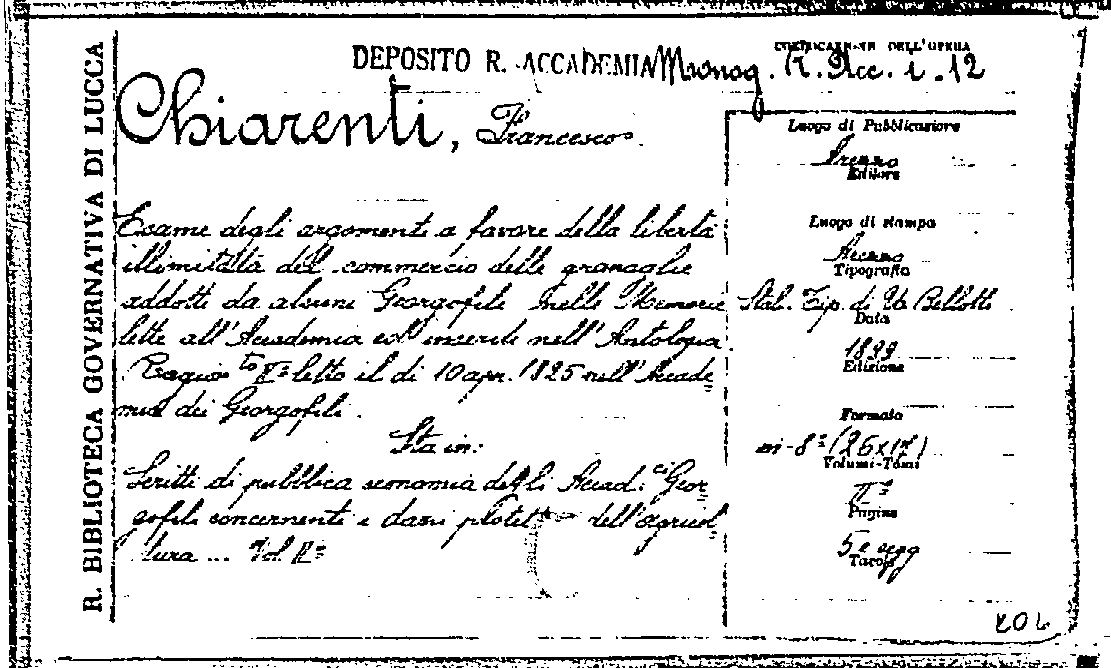 R. BIBLIOTECA GOVERNATIVA DI LUCCA
DEPOSITO R. ACCADEMIA
DELL'OPERA
Monog. R. Acc. i. 12
Chiarenti, Francesco.
Esame degli argomenti a favore della libertà
illimitata del commercio delle granaglie
addotti da alcuni Georgofili nelle Memorie
lette all'Accademia ed inserite nell'Antologia.
Ragion.to II° letto il di 10 apr. 1825 nell'Accade
mia dei Georgofili.
Sta in:
Scritti di pubblica economia degli Accad.ci Geor
gofili concernenti i dazi dell'agricol
tura ... Vol. II°
Luogo di Pubblicazione
Arezzo
Editore
Luogo di stampa
Arezzo
Tipografia
Stab. Tip. di U. Bellotti
Data
1899
Edizione
Formato
in-8° (26x17)
Volumi-Tomi
II°
Pagine
5 e segg
Tavole
202